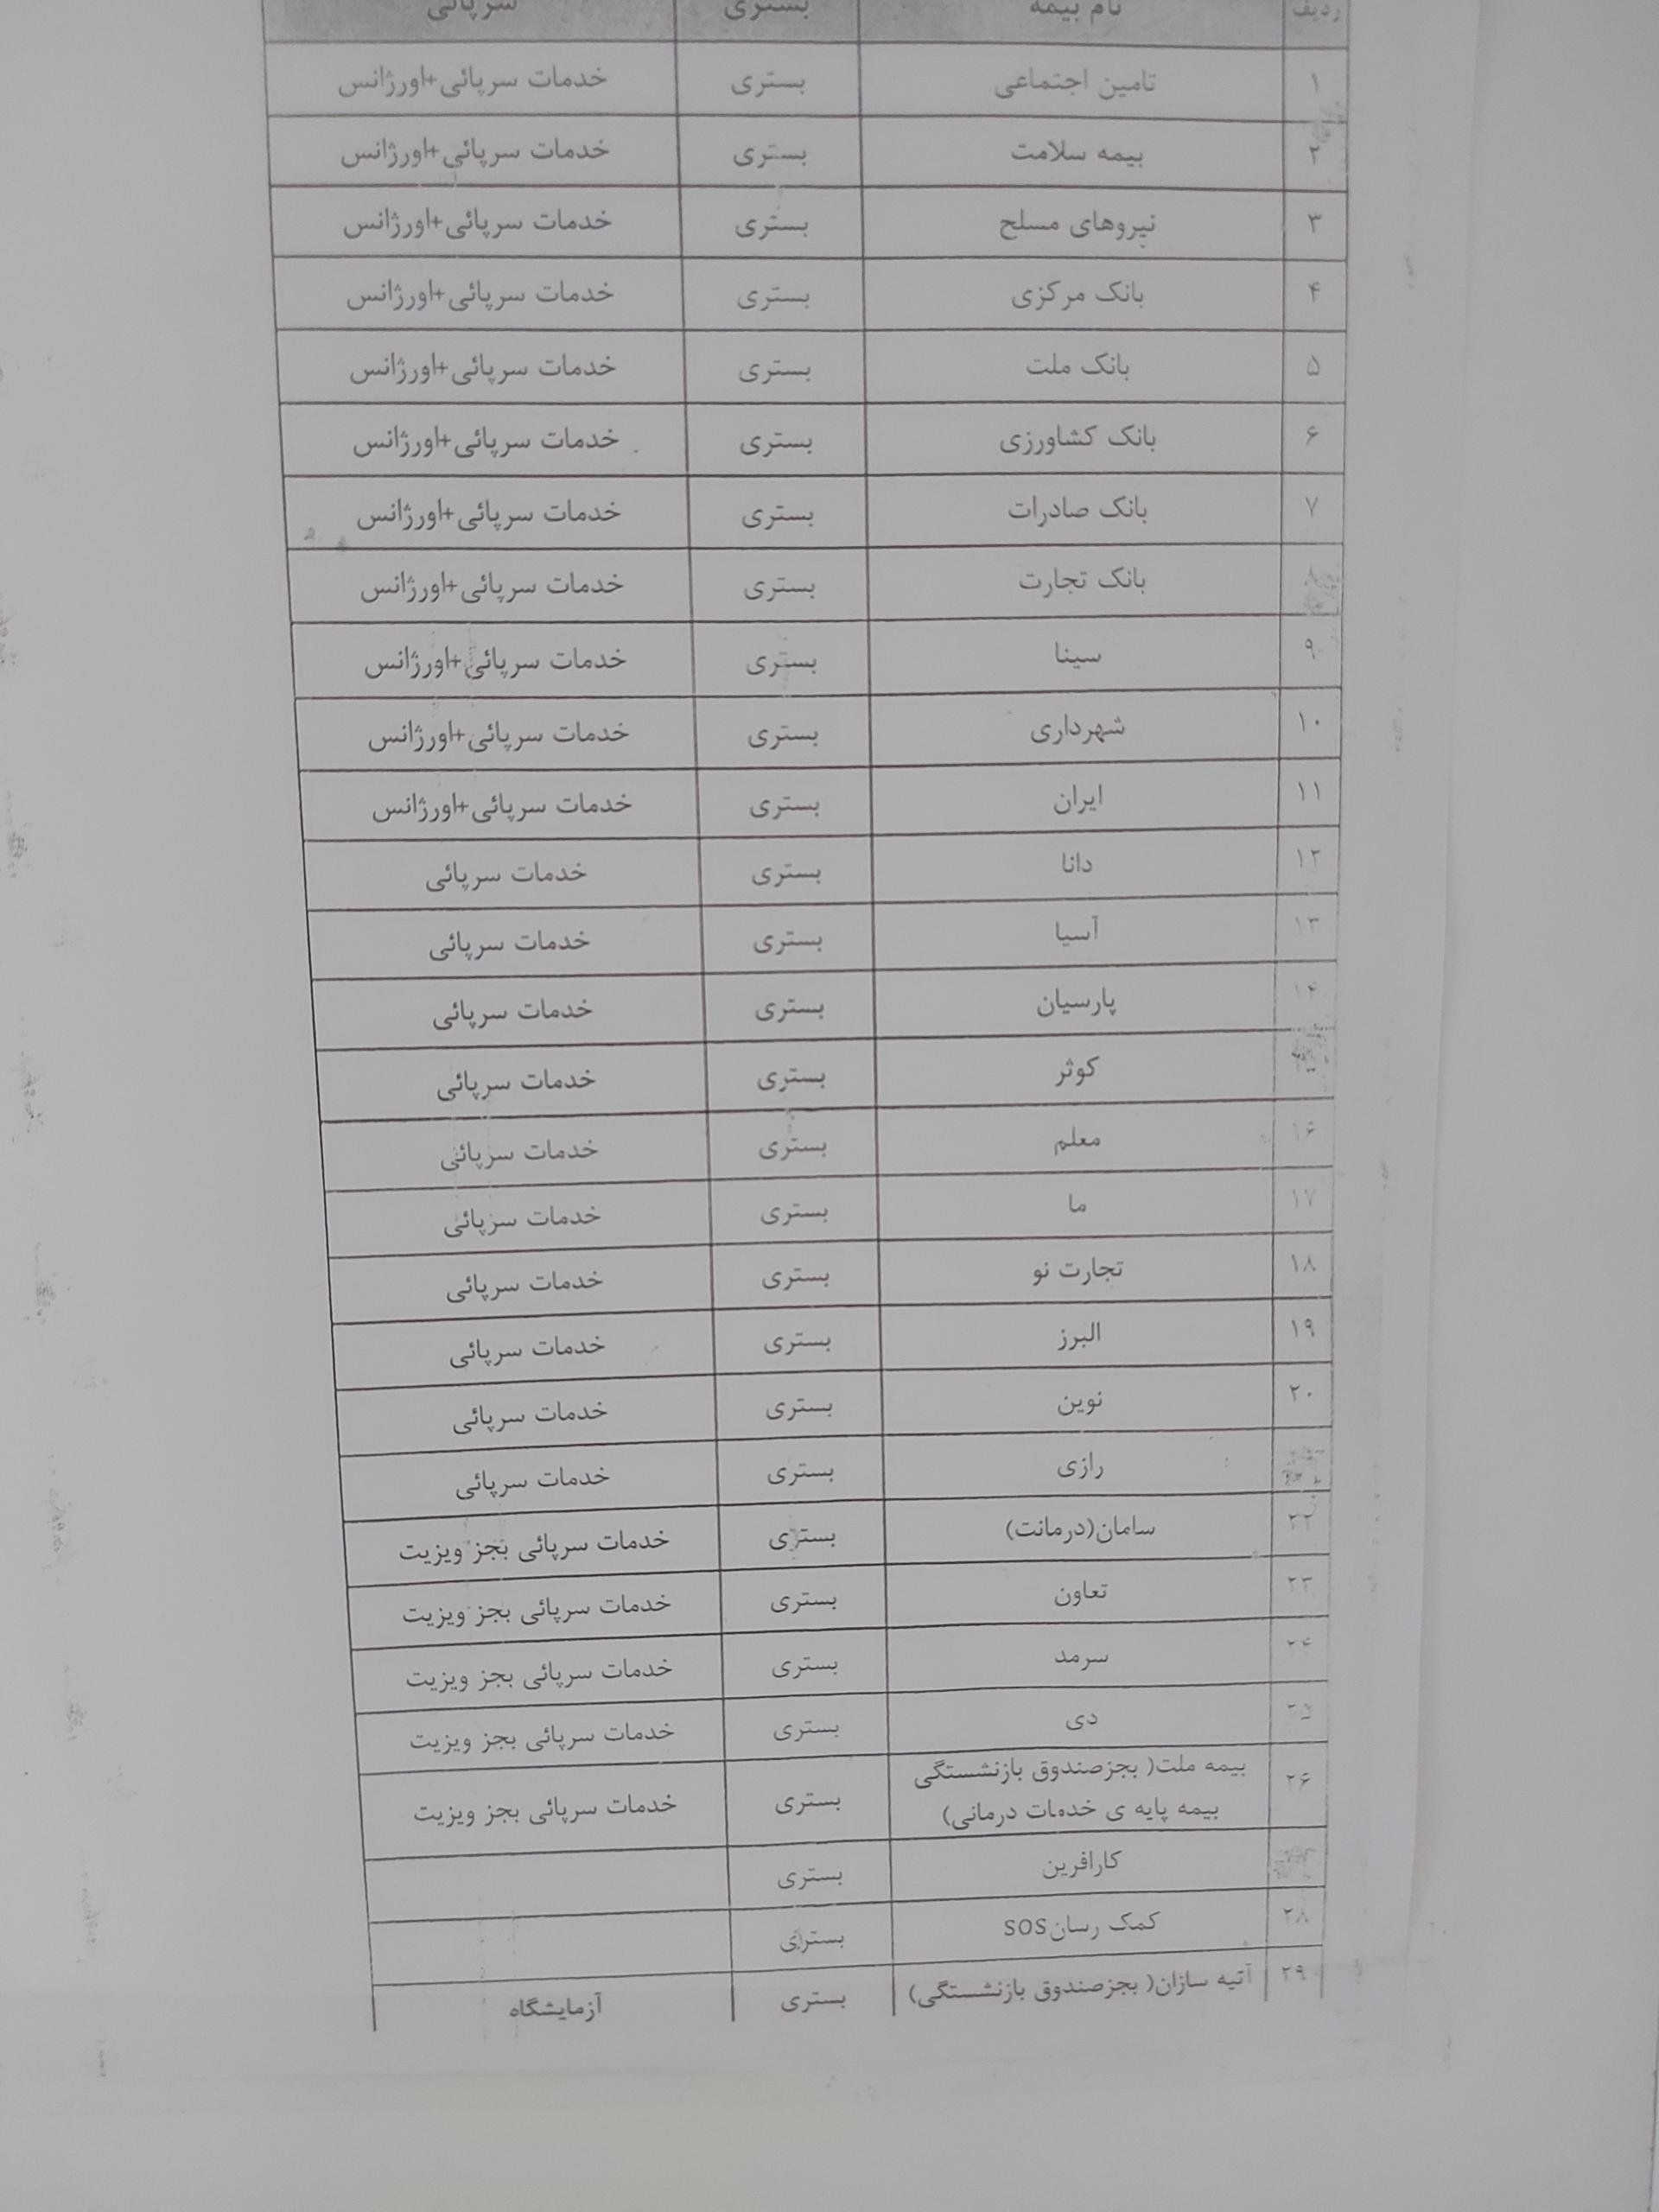 ردیف نام بیمه بستری سرپائی
۱ تامین اجتماعی بستری خدمات سرپائی+اورژانس
۲ بیمه سلامت بستری خدمات سرپائی+اورژانس
۳ نیروهای مسلح بستری خدمات سرپائی+اورژانس
۴ بانک مرکزی بستری خدمات سرپائی+اورژانس
۵ بانک ملت بستری خدمات سرپائی+اورژانس
۶ بانک کشاورزی بستری خدمات سرپائی+اورژانس
۷ بانک صادرات بستری خدمات سرپائی+اورژانس
۸ بانک تجارت بستری خدمات سرپائی+اورژانس
۹ سینا بستری خدمات سرپائی+اورژانس
۱۰ شهرداری بستری خدمات سرپائی+اورژانس
۱۱ ایران بستری خدمات سرپائی+اورژانس
۱۲ دانا بستری خدمات سرپائی
۱۳ آسیا بستری خدمات سرپائی
۱۴ پارسیان بستری خدمات سرپائی
کوثر بستری خدمات سرپائی
۱۶ معلم بستری خدمات سرپائی
۱۷ ما بستری خدمات سرپائی
۱۸ تجارت نو بستری خدمات سرپائی
۱۹ البرز بستری خدمات سرپائی
۲۰ نوین بستری خدمات سرپائی
رازی بستری خدمات سرپائی
۲۲ سامان(درمانت) بستری خدمات سرپائی بجز ویزیت
۲۳ تعاون بستری خدمات سرپائی بجز ویزیت
۲۴ سرمد بستری خدمات سرپائی بجز ویزیت
۲۵ دی بستری خدمات سرپائی بجز ویزیت
۲۶ بیمه ملت( بجزصندوق بازنشستگی
بیمه پایه ی خدمات درمانی) بستری خدمات سرپائی بجز ویزیت
کارافرین بستری
۲۸ کمک رسانSOS بستری
۲۹ آتیه سازان( بجزصندوق بازنشستگی) بستری آزمایشگاه